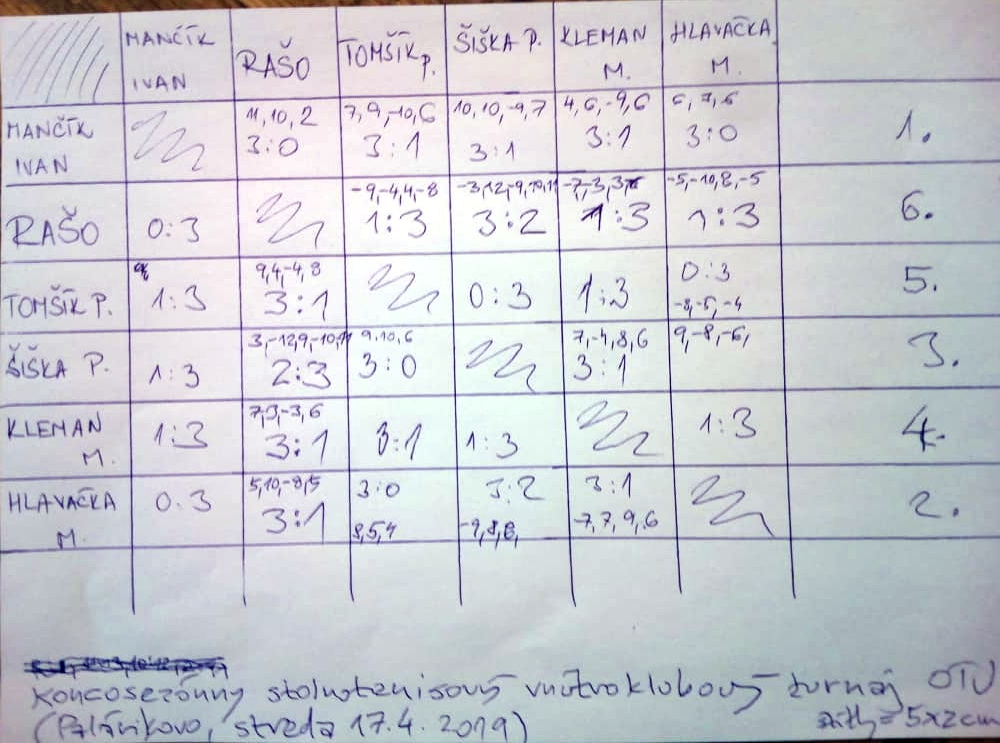 MANČÍK IVAN RAŠO TOMŠÍK P. ŠIŠKA P. KLEMAN M. HLAVAČKA M.
MANČÍK IVAN 11, 10, 2 3:0 7, 9, -10, 6 3:1 10, 10, -9, 7 3:1 4, 6, -9, 6 3:1 6, 7, 6 3:0 1.
RAŠO 0:3 -9, -4, 4, -8 1:3 -3, 12, -9, 10, 11 3:2 -7, -3, 3, 1:3 -5, -10, 8, -5 1:3 6.
TOMŠÍK P. 1:3 9, 4, -4, 8 3:1 0:3 1:3 0:3 -8, -5, -4 5.
ŠIŠKA P. 1:3 3, -12, 9, -10, 2:3 9, 10, 6 3:0 7, -4, 8, 6 3:1 9, -8, -6, 3.
KLEMAN M. 1:3 7, 3, -3, 6 3:1 3:1 1:3 1:3 4.
HLAVAČKA M. 0:3 5, 10, -8, 5 3:1 3:0 8, 5, 4 3:2 -9, 8, 6, 3:1 -7, 7, 9, 6 2.
Koncosezónny stolnotenisový vnútroklubový turnaj OTU
(Palárikovo, streda 17.4. 2019) = 5x2cm